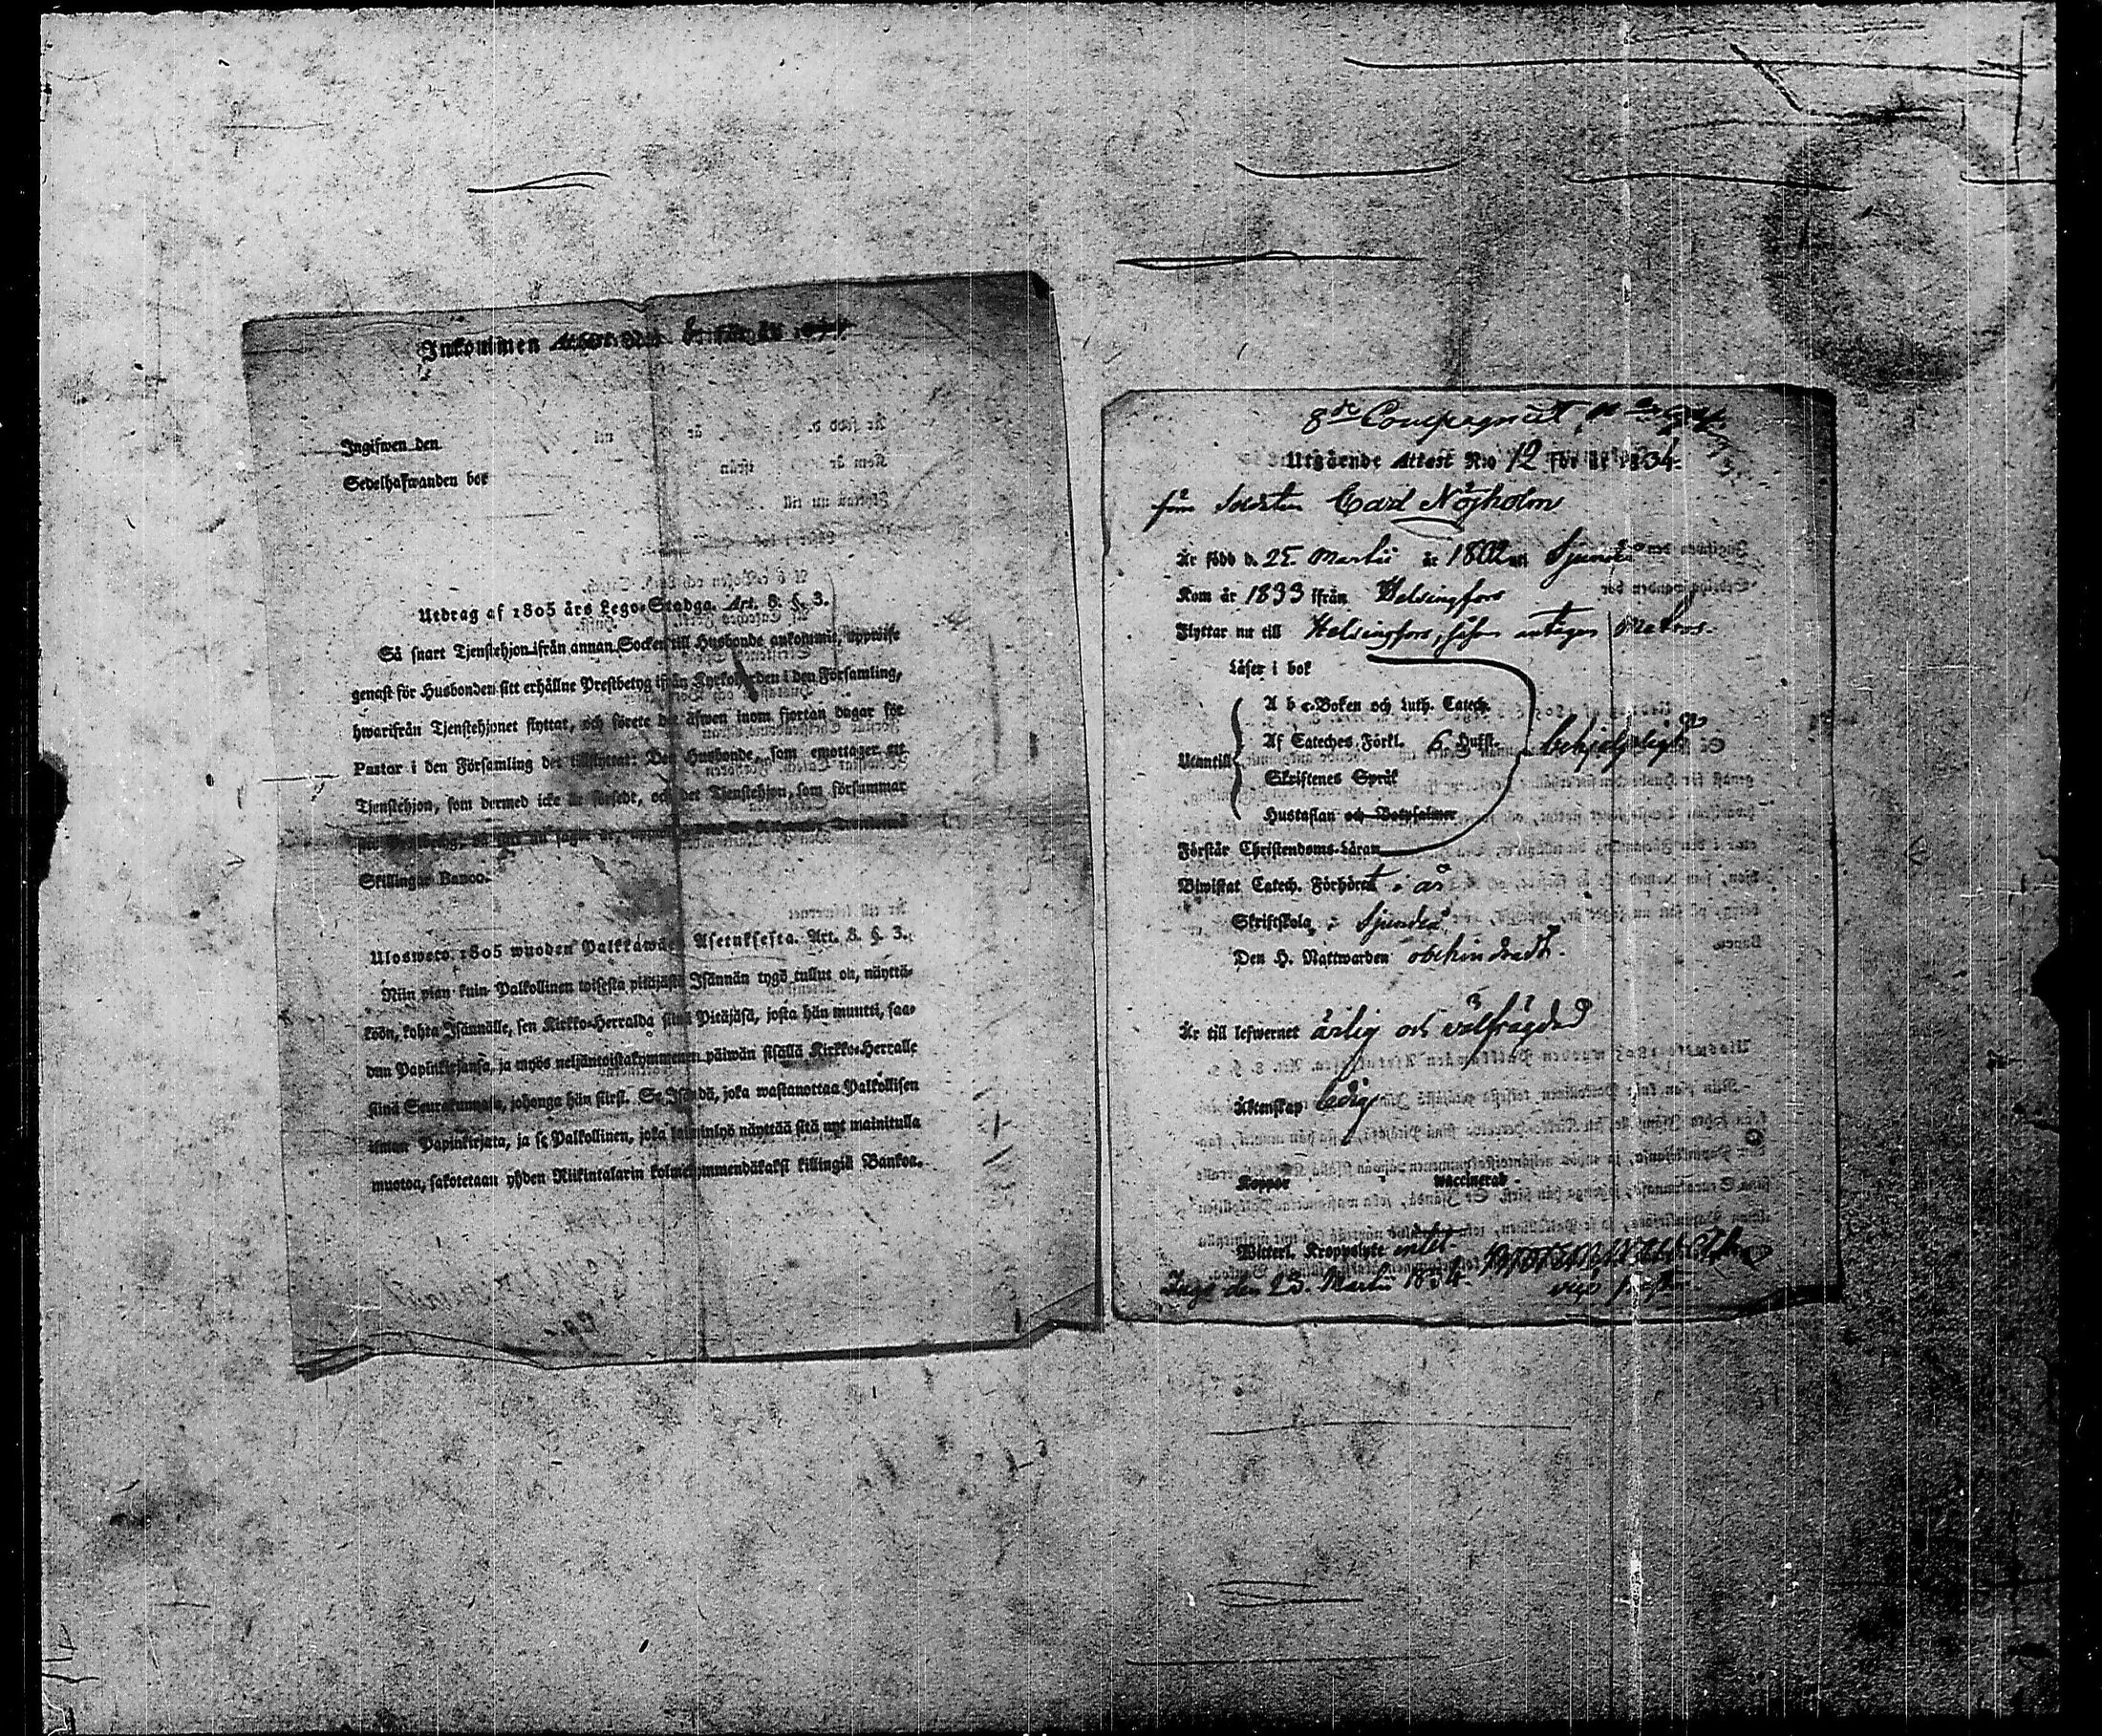 Inkommen Attest N:o för år 18
Ingifwen den
Sedelhafwanden bor
Utdrag af 1805 års Lego-Stadga. Art. 8. §. 3.
Så snart Tjenstehjon ifrån annan Socken till Husbonde ankommit, uppwise
genast för Husbonden sitt erhållne Prestbetyg ifrån Kyrkoherden i den Församling,
hwarifrån Tjenstehjonet flyttat, och förete det äfwen inom fjortan dagar för
Pastor i den Församling det tillflyttat: Den Husbonde, som emottager ett
Tjenstehjon, som dermed icke är försedt, och det Tjenstehjon, som försummar
Skillingar Banco.
Ulosweto 1805 wuoden Palkkawäen Asetuksesta. Art. 8. §. 3.
Niin pian kuin Palkollinen toisesta pitäjästä Isännän tygö tullut on, näyttä-
köön, kohta Isännälle, sen Kirkko-Herralda siinä Pitäjäsä, josta hän muutti, saa-
dun Papinkirjansa, ja myös neljäntoistakymmenen päiwän sisällä Kirkko-Herralle
siinä Seurakunnasa, johonga hän siirsi. Se Isändä, joka wastanottaa Palkollisen
ilman Papinkirjata, ja se Palkollinen, joka laiminlyö näyttää sitä nyt mainitulla
muotoa, sakotetaan yhden Riikintalarin kolmekymmendäkaksi killingiä Bankoa.
8de Compagniet
Utgående Attest N:o 12 för år 1834.
före Soldaten Carl Nöjholm
Är född d. 25. Martii år 1802 uti Sjundeå
Kom år 1833 ifrån Helsingfors
Flyttar nu till Helsingfors, såsom antagen Matros.
Läser i bok
A b c-Boken och Luth. Catech.
Af Cateches. Förkl. 6 Hufst. behjelpligt
Utantill
Skriftenes Språk
Hustaflan och Botpsalmer
Förstår Christendoms-Läran
Biwistat Catech. Förhöret i år
Skriftskola i Sjundeå
Den H. Nattwarden obehindradt.
Är till lefwernet ärlig och välfrägdad
Äktenskap ledig
Koppor waccinerad
Witterl. Kroppslyte intet.
Ingå den 23. Martii 1834.